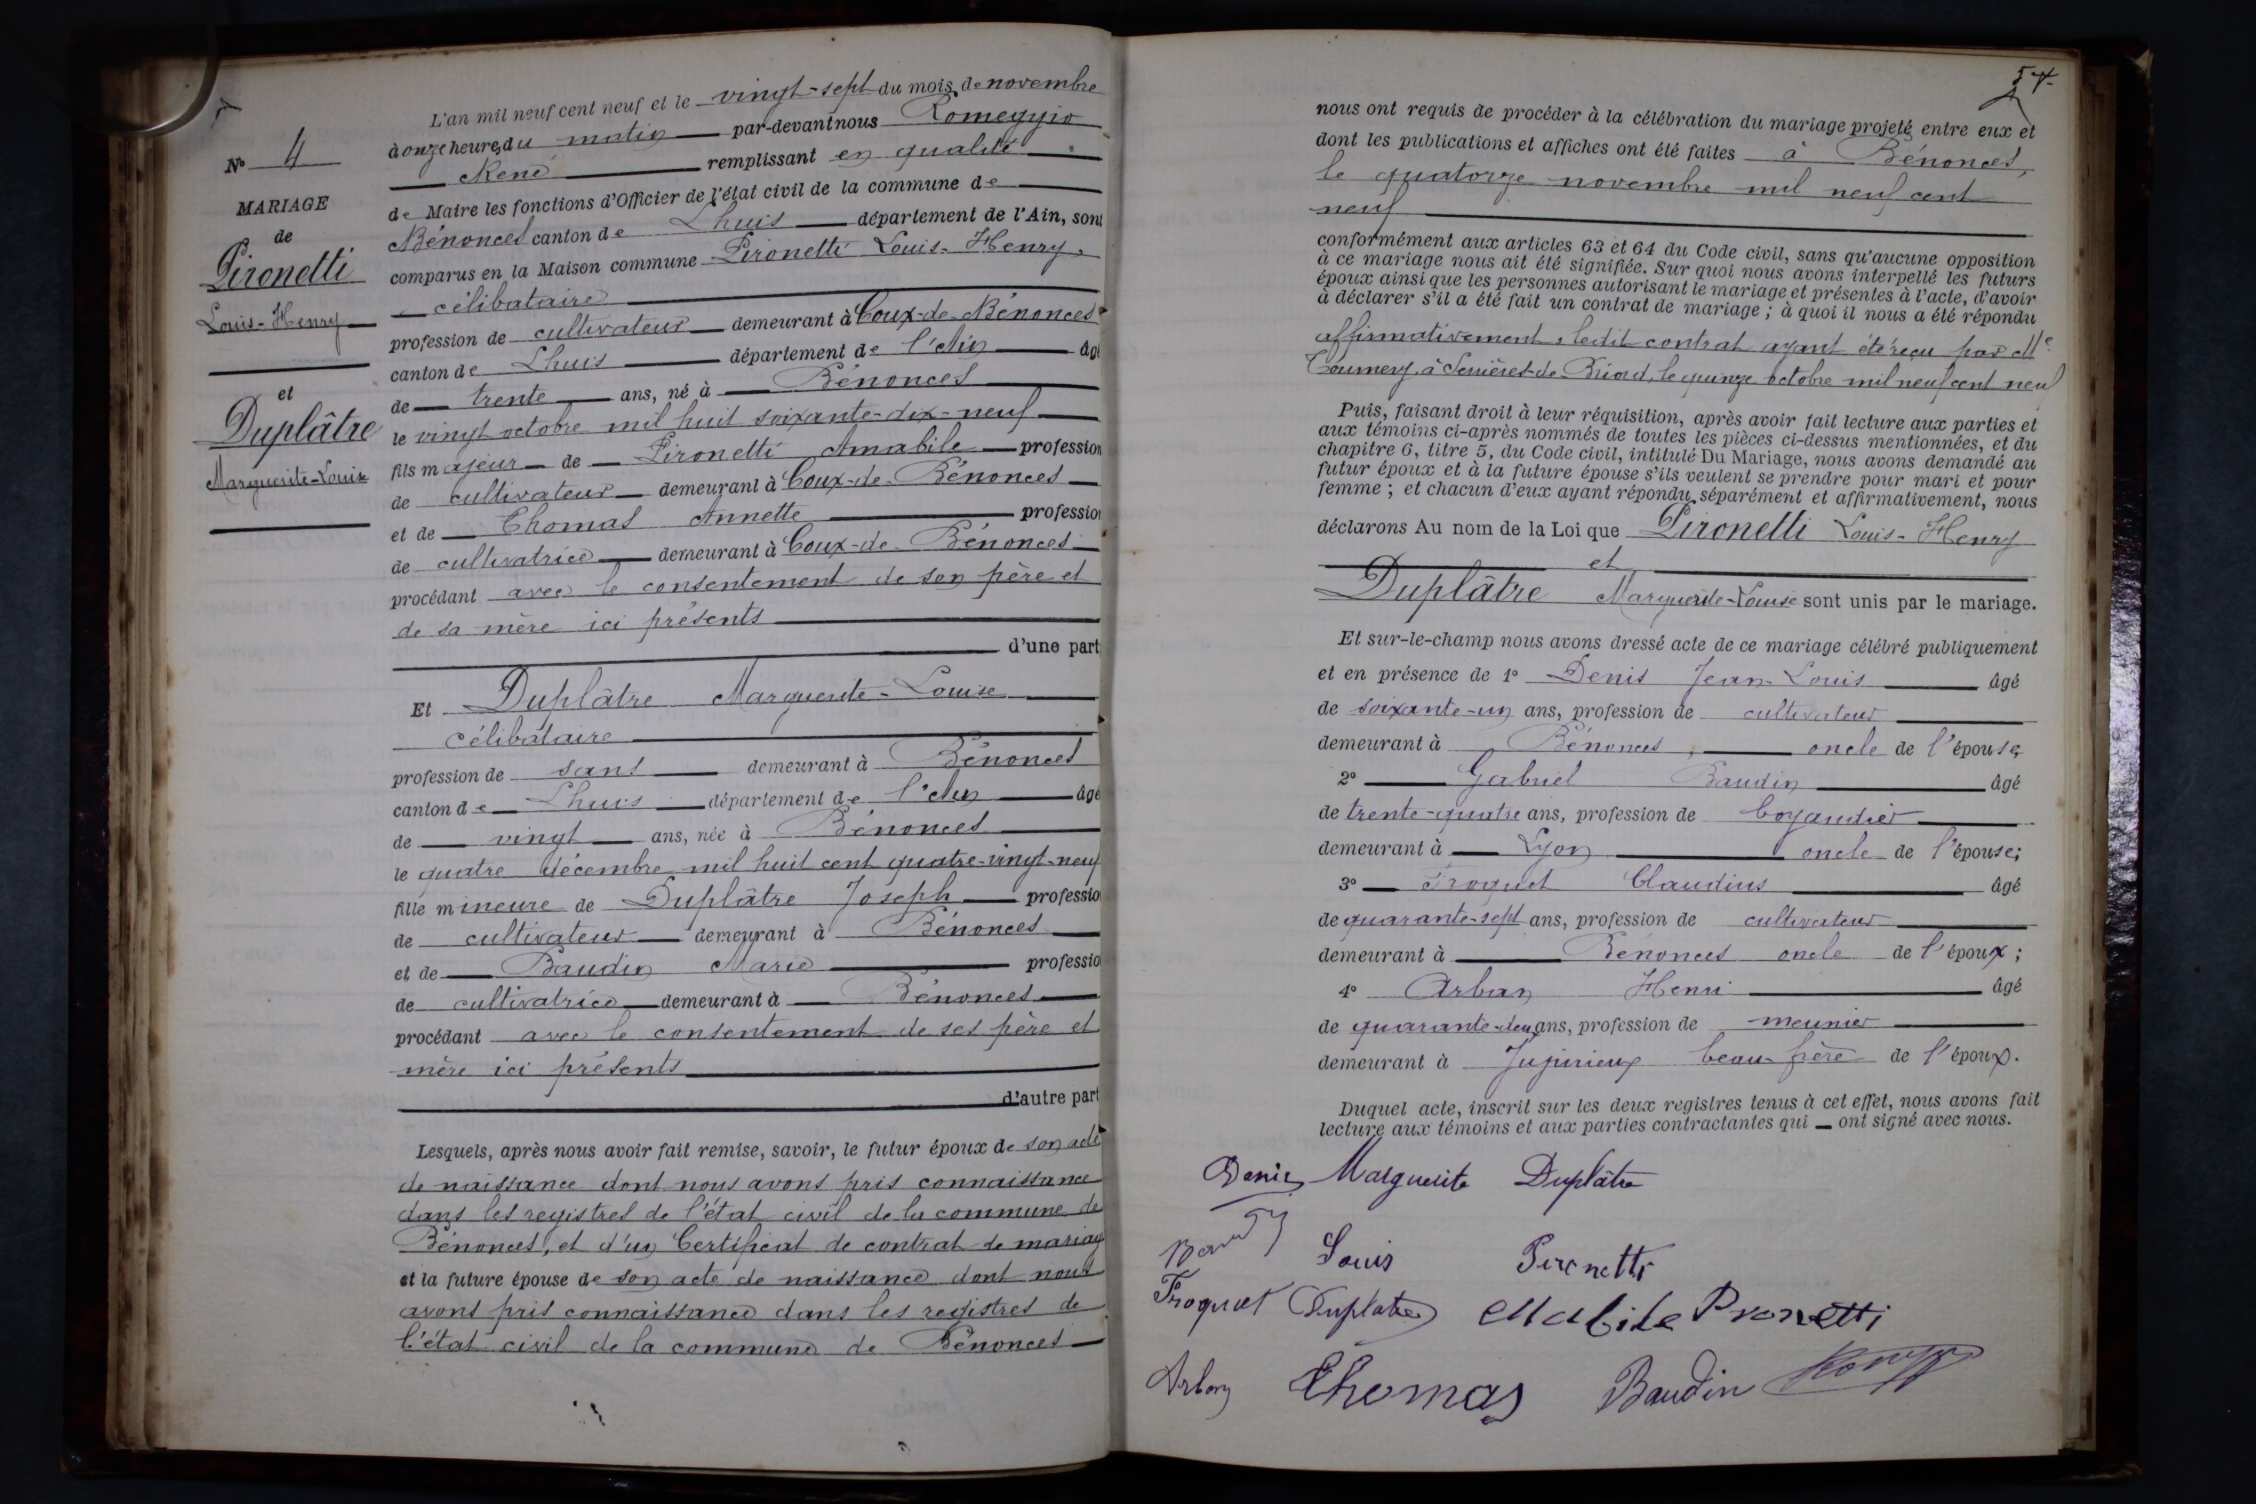 N° 4
MARIAGE
de
Pironetti
Louis-Henry
et
Duplâtre
Marguerite-Louise
L'an mil neuf cent neuf et le vingt-sept du mois de novembre
à onze heures du matin par-devant nous Romeggio
René remplissant en qualité
de Maire les fonctions d'Officier de l'état civil de la commune de
Bénonces canton de Lhuis département de l'Ain, sont
comparus en la Maison commune Pironetti Louis-Henry,
célibataire
profession de cultivateur demeurant à Coux-de-Bénonces
canton de Lhuis département de l'Ain âgé
de trente ans, né à Bénonces
le vingt octobre mil huit soixante-dix-neuf
fils majeur de Pironetti Amabile profession
de cultivateur demeurant à Coux-de-Bénonces
et de Thomas Annette profession
de cultivatrice demeurant à Coux-de-Bénonces
procédant avec le consentement de son père et
de sa mère ici présents
d'une part
Et Duplâtre Marguerite-Louise
célibataire
profession de sans demeurant à Bénonces
canton de Lhuis département de l'Ain âgé
de vingt ans, née à Bénonces
le quatre décembre mil huit cent quatre-vingt-neuf
fille mineure de Duplâtre Joseph profession
de cultivateur demeurant à Bénonces
et de Baudin Marie profession
de cultivatrice demeurant à Bénonces
procédant avec le consentement de ses père et
mère ici présents
d'autre part
Lesquels, après nous avoir fait remise, savoir, le futur époux de son acte
de naissance dont nous avons pris connaissance
dans les registres de l'état civil de la commune de
Bénonces, et d'un Certificat de contrat de mariage
et la future épouse de son acte de naissance dont nous
avons pris connaissance dans les registres de
l'état civil de la commune de Bénonces
57
nous ont requis de procéder à la célébration du mariage projeté entre eux et
dont les publications et affiches ont été faites à Bénonces,
le quatorze novembre mil neuf cent
neuf
conformément aux articles 63 et 64 du Code civil, sans qu'aucune opposition
à ce mariage nous ait été signifiée. Sur quoi nous avons interpellé les futurs
époux ainsi que les personnes autorisant le mariage et présentes à l'acte, d'avoir
à déclarer s'il a été fait un contrat de mariage ; à quoi il nous a été répondu
affirmativement, ledit contrat ayant été reçu par Me
Tournery, à Serrières-de-Briord, le quinze octobre mil neuf cent neuf
Puis, faisant droit à leur réquisition, après avoir fait lecture aux parties et
aux témoins ci-après nommés de toutes les pièces ci-dessus mentionnées, et du
chapitre 6, titre 5, du Code civil, intitulé Du Mariage, nous avons demandé au
futur époux et à la future épouse s'ils veulent se prendre pour mari et pour
femme ; et chacun d'eux ayant répondu séparément et affirmativement, nous
déclarons Au nom de la Loi que Pironetti Louis-Henry
et
Duplâtre Marguerite-Louise sont unis par le mariage.
Et sur-le-champ nous avons dressé acte de ce mariage célébré publiquement
et en présence de 1° Denis Jean-Louis âgé
de soixante-un ans, profession de cultivateur
demeurant à Bénonces, oncle de l'épouse;
2° Gabriel Baudin âgé
de trente-quatre ans, profession de boyaudier
demeurant à Lyon oncle de l'épouse;
3° Froquet Claudius âgé
de quarante-sept ans, profession de cultivateur
demeurant à Benonces oncle de l'époux ;
4° Arban Henri âgé
de quarante-deux ans, profession de meunier
demeurant à Jujurieux beau-frère de l'époux.
Duquel acte, inscrit sur les deux registres tenus à cet effet, nous avons fait
lecture aux témoins et aux parties contractantes qui ont signé avec nous.
Denis Marguerite Duplâtre
Louis Pironetti
Froquet Duplatre Mabile Pronetti
Arban Thomas Baudin